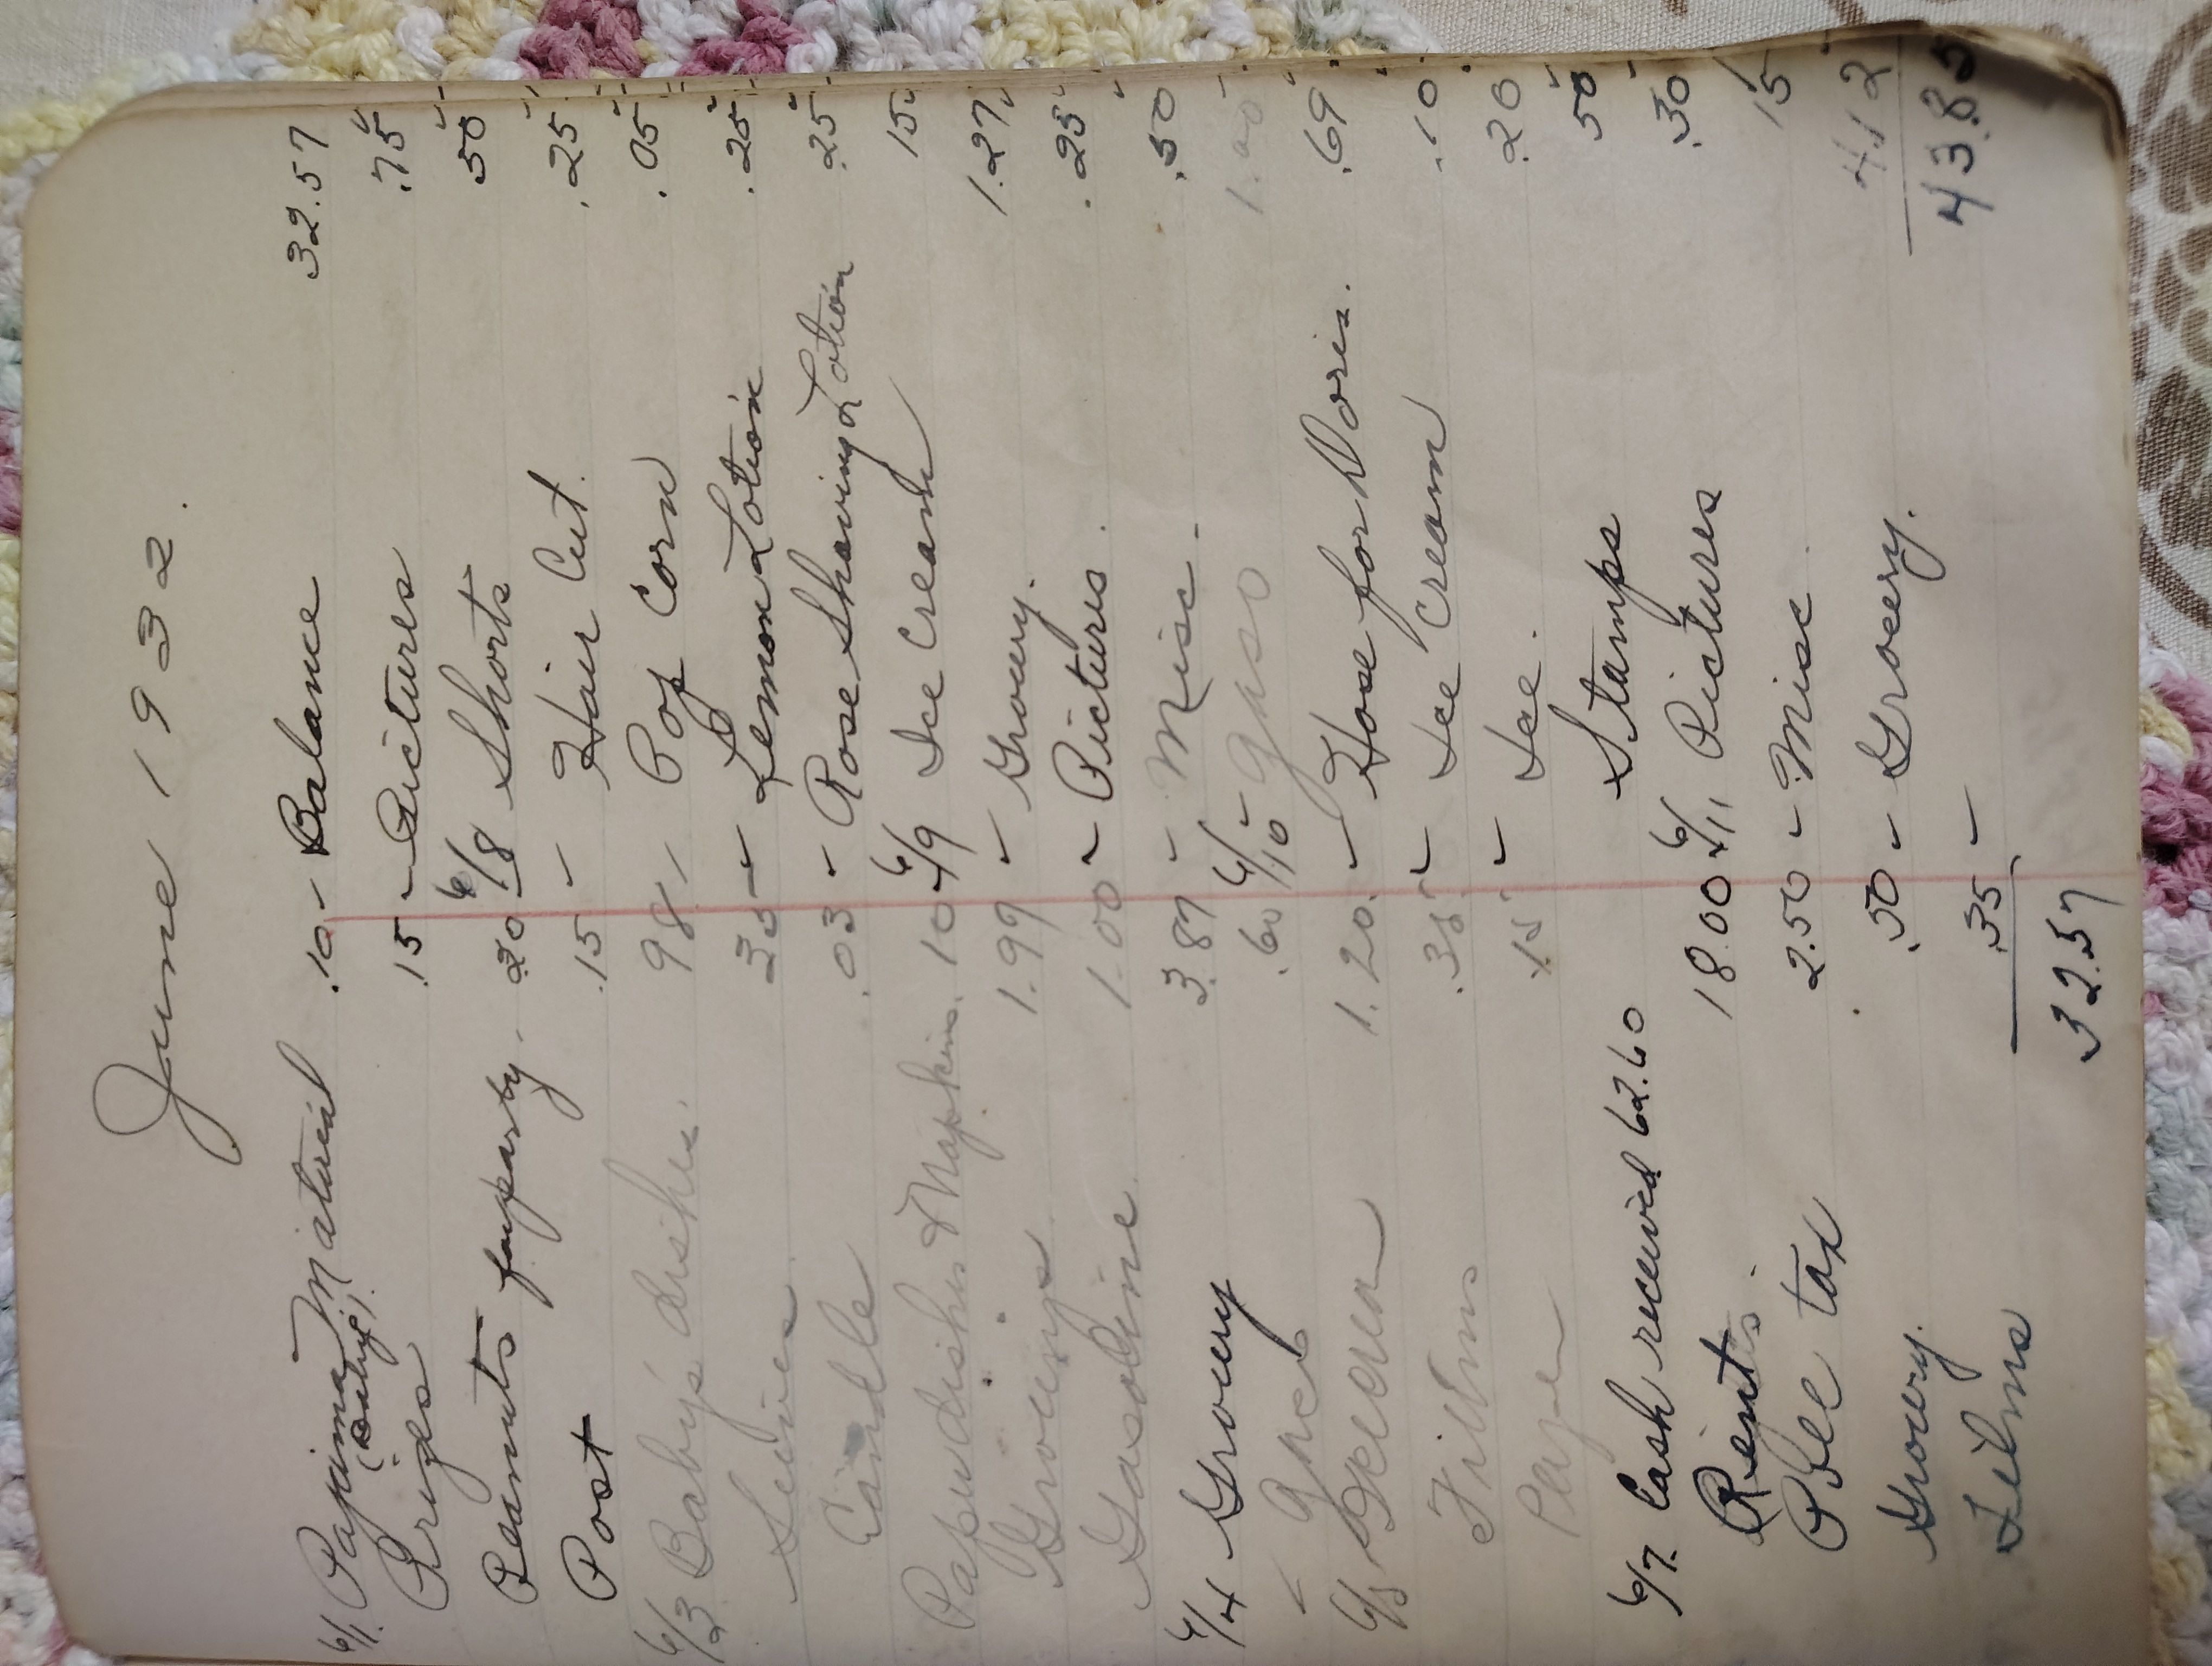 June 1932.
6/1. Pajama Material .10 -
(Betty's).
Prizes .15 -
Peanuts for party. .20 -
Post .15 -
6/3 Baby's dishes. 98 -
.03 -
Candle
Paper dishes & Napkins. 10 -
Grocerys 1.99 -
Gasoline. 1.00 -
6/4 Grocery 3.87 -
.60 -
6/5 1.20. -
Films .35 -
.15 -
6/7. Cash received 62.60
Rent 18.00 -
Pole tax 2.50 -
Grocery. .50 -
Films .35 -
32.57
Balance 32.57
Pictures .75
6/8 Shorts 50
Hair Cut. .25
Pop Corn .05
Lemon Lotion .25
Rose Shaving Lotion .25
6/9 Ice Cream 15
Grocery. 1.27
Pictures. .25
Misc. .50
6/10 Gaso 1.00
Hose for Doris. .69
Ice Cream .10
Ice. .20
Stamps 50
6/11 Pictures .30
Misc. 15
Grocery. 4.12
43.85